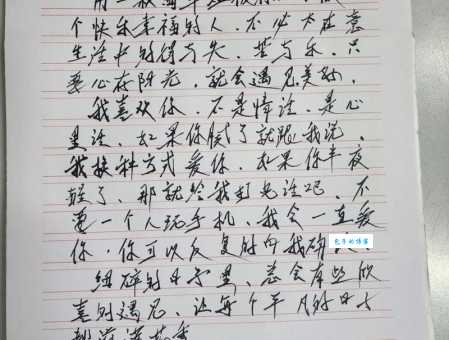 个快乐幸福的人、不必太在意
生活中的得与失、苦与乐、只
要心在阳光、就会遇见美好、
我喜欢你、不是情话、是心
里话、如果你腻了就跟我说、
我换种方式爱你、如果你半夜
醒了、那就给我打电话吧、不
要一个人玩手机、我会一直爱
你、你可以反复的向我确
包子的博客
细碎的日子里、总会有些欣
喜的遇见、让每个平凡的日子